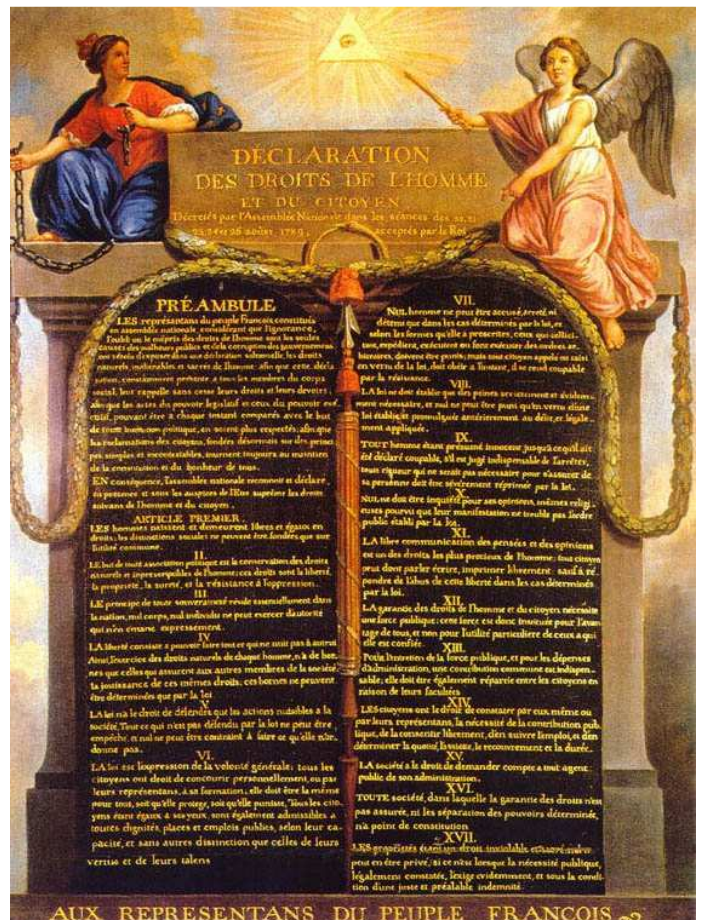 DÉCLARATION
DES DROITS DE L'HOMME
ET DU CITOYEN
Décretés par l'Assemblée Nationale dans les séances des 20, 21
23, 24 et 26 août, 1789, acceptés par le Roi
PRÉAMBULE
LES représentans du peuple François constitués
en assemblée nationale, considérant que l'ignorance,
l'oubli ou le mépris des droits de l'homme sont les seules
causes des malheurs publics et de la corruption des gouvernemens
ont résolu d'exposer dans une déclaration solemnelle, les droits
naturels, inaliénables et sacrés de l'homme: afin que cette décla
ration, constamment présente à tous les membres du corps
social, leur rappelle sans cesse leurs droits et leurs devoirs,
afin que les actes du pouvoir législatif et ceux du pouvoir exé
cutif, pouvant être à chaque instant comparés avec le but
de toute institution politique, en soient plus respectés; afin que
les réclamations des citoyens, fondées désormais sur des princi
pes simples et incontestables, tournent toujours au maintien
de la constitution et du bonheur de tous.
EN conséquence, l'assemblée nationale reconnoît et déclare
en présence et sous les auspices de l'Etre suprême les droits
suivans de l'homme et du citoyen.
ARTICLE PREMIER.
LES hommes naissent et demeurent libres et égaux en
droits; les distinctions sociales ne peuvent être fondées que sur
l'utilité commune.
II.
LE but de toute association politique est la conservation des droits
naturels et imprescriptibles de l'homme; ces droits sont la liberté,
la propriété, la sureté, et la résistance à l'oppression.
III.
LE principe de toute souveraineté réside essentiellement dans
la nation, nul corps, nul individu ne peut exercer d'autorité
qui n'en émane expressement.
IV.
LA liberté consiste à pouvoir faire tout ce qui ne nuit pas à autrui
Ainsi, l'exercice des droits naturels de chaque homme, n'a de bor
nes que celles qui assurent aux autres membres de la société
la jouissance de ces mêmes droits; ces bornes ne peuvent
être déterminées que par la loi
V.
LA loi n'a le droit de défendre que les actions nuisibles à la
société. Tout ce qui n'est pas défendu par la loi ne peut être
empêché, et nul ne peut être contraint à faire ce qu'elle n'or-
donne pas.
VI.
LA loi est l'expression de la volonté générale; tous les
citoyens ont droit de concourir personnellement, ou par
leurs représentans, à sa formation; elle doit être la même
pour tous, soit qu'elle protege, soit qu'elle punisse, Tous les cito
yens étant égaux à ses yeux, sont également admissibles à
toutes dignités, places et emplois publics, selon leur ca-
pacité, et sans autres distinction que celles de leurs
vertus et de leurs talens
VII.
NUL homme ne peut être accusé, arreté, ni
détenu que dans les cas déterminés par la loi, et
selon les formes qu'elle à prescrites, ceux qui sollici-
tent, expédient, exécutent ou font exécuter des ordres ar-
bitraires, doivent être punis; mais tout citoyen appelé ou saisi
en vertu de la loi, doit obéir à l'instant, il se rend coupable
par la résistance.
VIII.
LA loi ne doit établir que des peines strictement et évidem-
ment nécessaire, et nul ne peut être puni qu'en vertu d'une
loi établie et promulguée antérierement au délit, et légale-
ment appliquée.
IX.
TOUT homme étant présumé innocent jusqu'à ce qu'il ait
été déclaré coupable, s'il est jugé indispensable de l'arrêter,
toute rigueur qui ne serait pas nécessaire pour s'assurer de
sa personne doit être sévèrement réprimée par la loi.
X.
NUL ne doit être inquiété pour ses opinions, mêmes religi-
euses pourvu que leur manifestation ne trouble pas l'ordre
public établi par la loi.
XI.
LA libre communication des pensées et des opinions
est un des droits les plus precieux de l'homme; tout citoyen
peut donc parler, écrire, imprimer librement: sauf à ré-
pondre de l'abus de cette liberté dans les cas déterminés
par la loi.
XII.
LA garantie des droits de l'homme et du citoyen nécessite
une force publique; cette force est donc instituée pour l'avan
tage de tous, et non pour l'utilité particulière de ceux a qui
elle est confiée.
XIII.
Pour l'entretien de la force publique, et pour les dépenses
d'administration, une contribution commune est indispen-
sable; elle doit être également répartie entre les citoyens en
raison de leurs facultées
XIV.
LES citoyens ont le droit de constater par eux même ou
par leurs représentans, la nécessité de la contribution pub-
lique, de la consentir librement, d'en suivre l'emploi, et d'en
déterminer la quotité, l'assiette, le recouvrement et la durée.
XV.
LA société a le droit de demander compte a tout agent
public de son administration.
XVI.
TOUTE société, dans laquelle la garantie des droits n'est
pas assurée, ni les séparation des pouvoirs déterminée,
n'a point de constitution
XVII.
LES propriétés étant un droit inviolable et sacré, nul ne
peut en être privé, si ce n'est lorsque la nécessité publique,
légalement constatée, l'exige evidemment, et sous la condi-
tion d'une juste et préalable indemnité.
AUX REPRESENTANS DU PEUPLE FRANCOIS